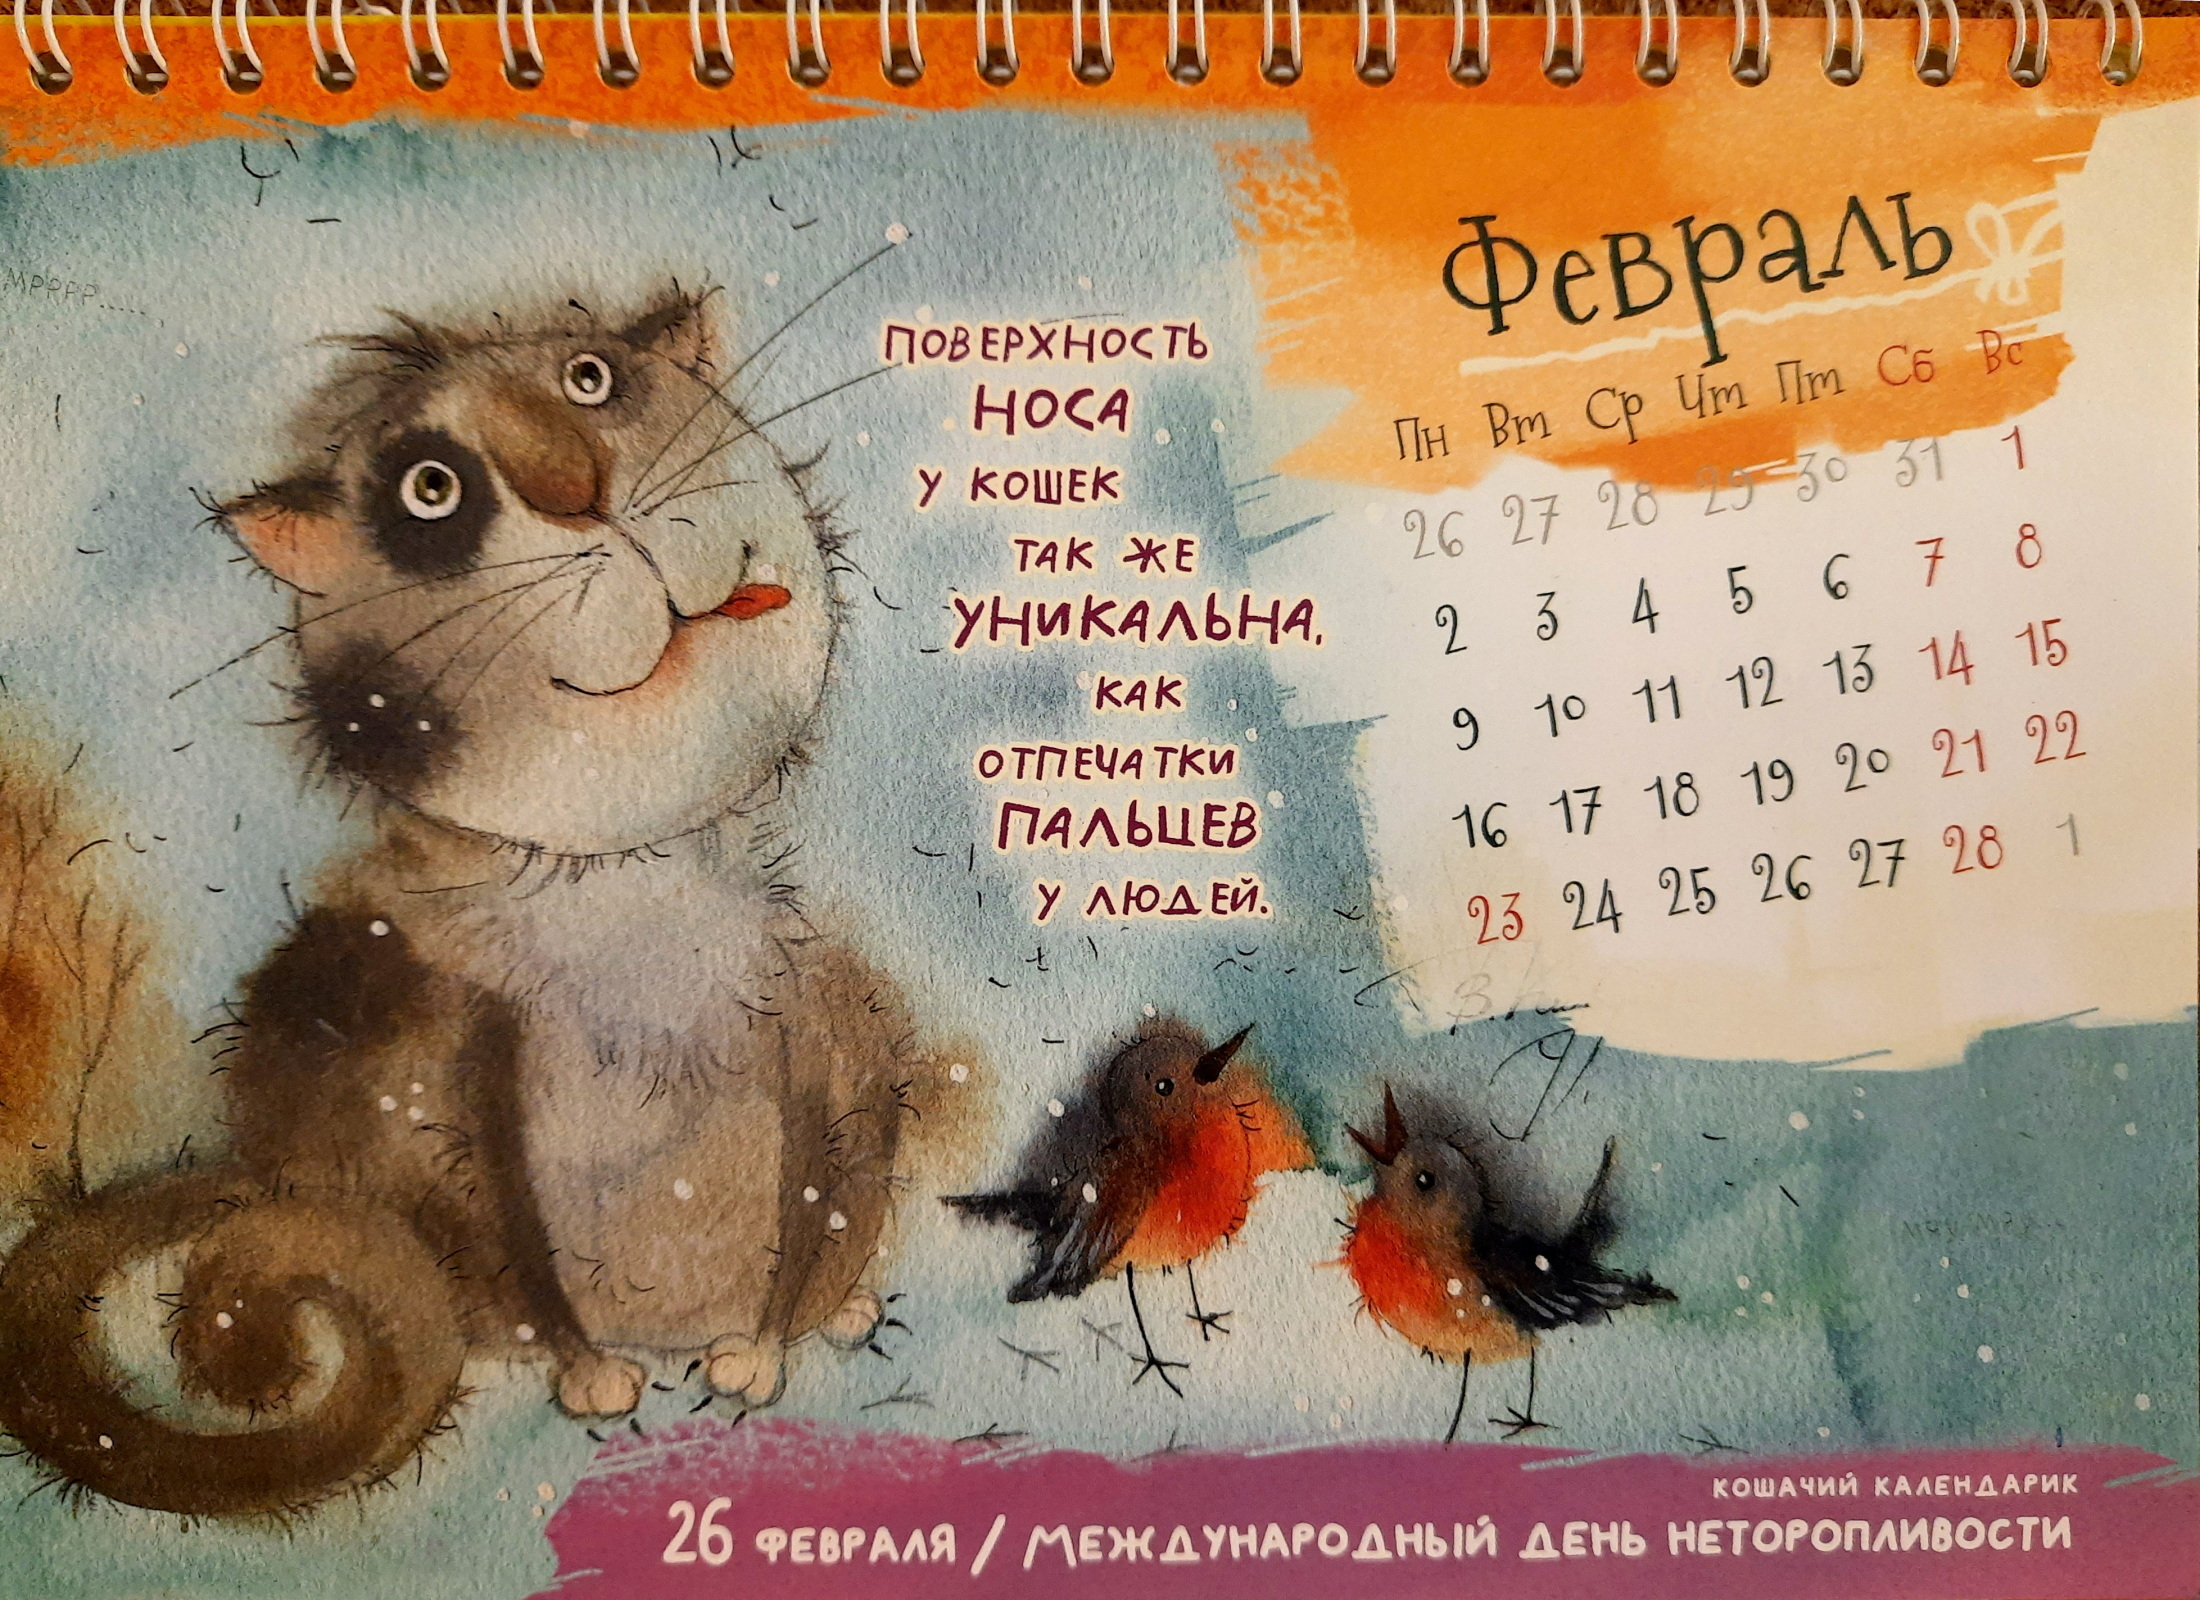 Февраль
Пн Вт Ср Чт Пт Сб Вс
26 27 28 29 30 31 1
2 3 4 5 6 7 8
9 10 11 12 13 14 15
16 17 18 19 20 21 22
23 24 25 26 27 28 1
МРРРР.....
ПОВЕРХНОСТЬ
НОСА
У КОШЕК
ТАК ЖЕ
УНИКАЛЬНА,
КАК
ОТПЕЧАТКИ
ПАЛЬЦЕВ
У ЛЮДЕЙ.
КОШАЧИЙ КАЛЕНДАРИК
26 ФЕВРАЛЯ / МЕЖДУНАРОДНЫЙ ДЕНЬ НЕТОРОПЛИВОСТИ